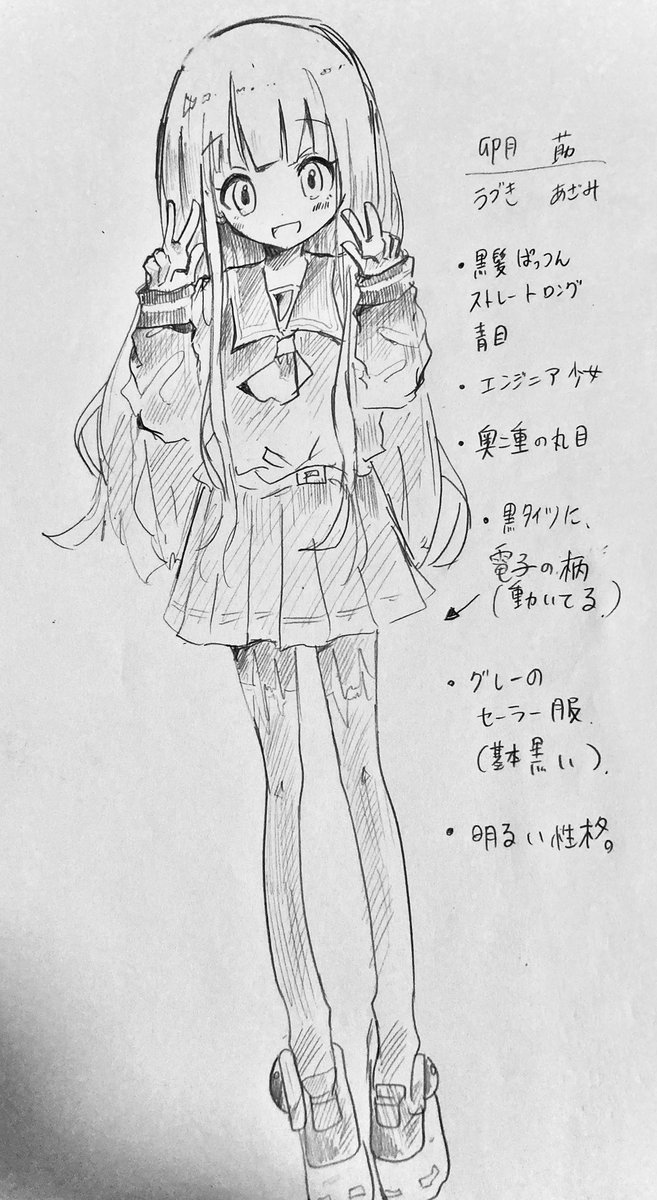 卯月 莇
うづき あざみ
・黒髪ぱっつん
ストレートロング
青目
・エンジニア少女
・奥二重の丸目
・黒タイツに、
電子の柄
(動いてる)
・グレーの
セーラー服
(基本黒い)
・明るい性格。